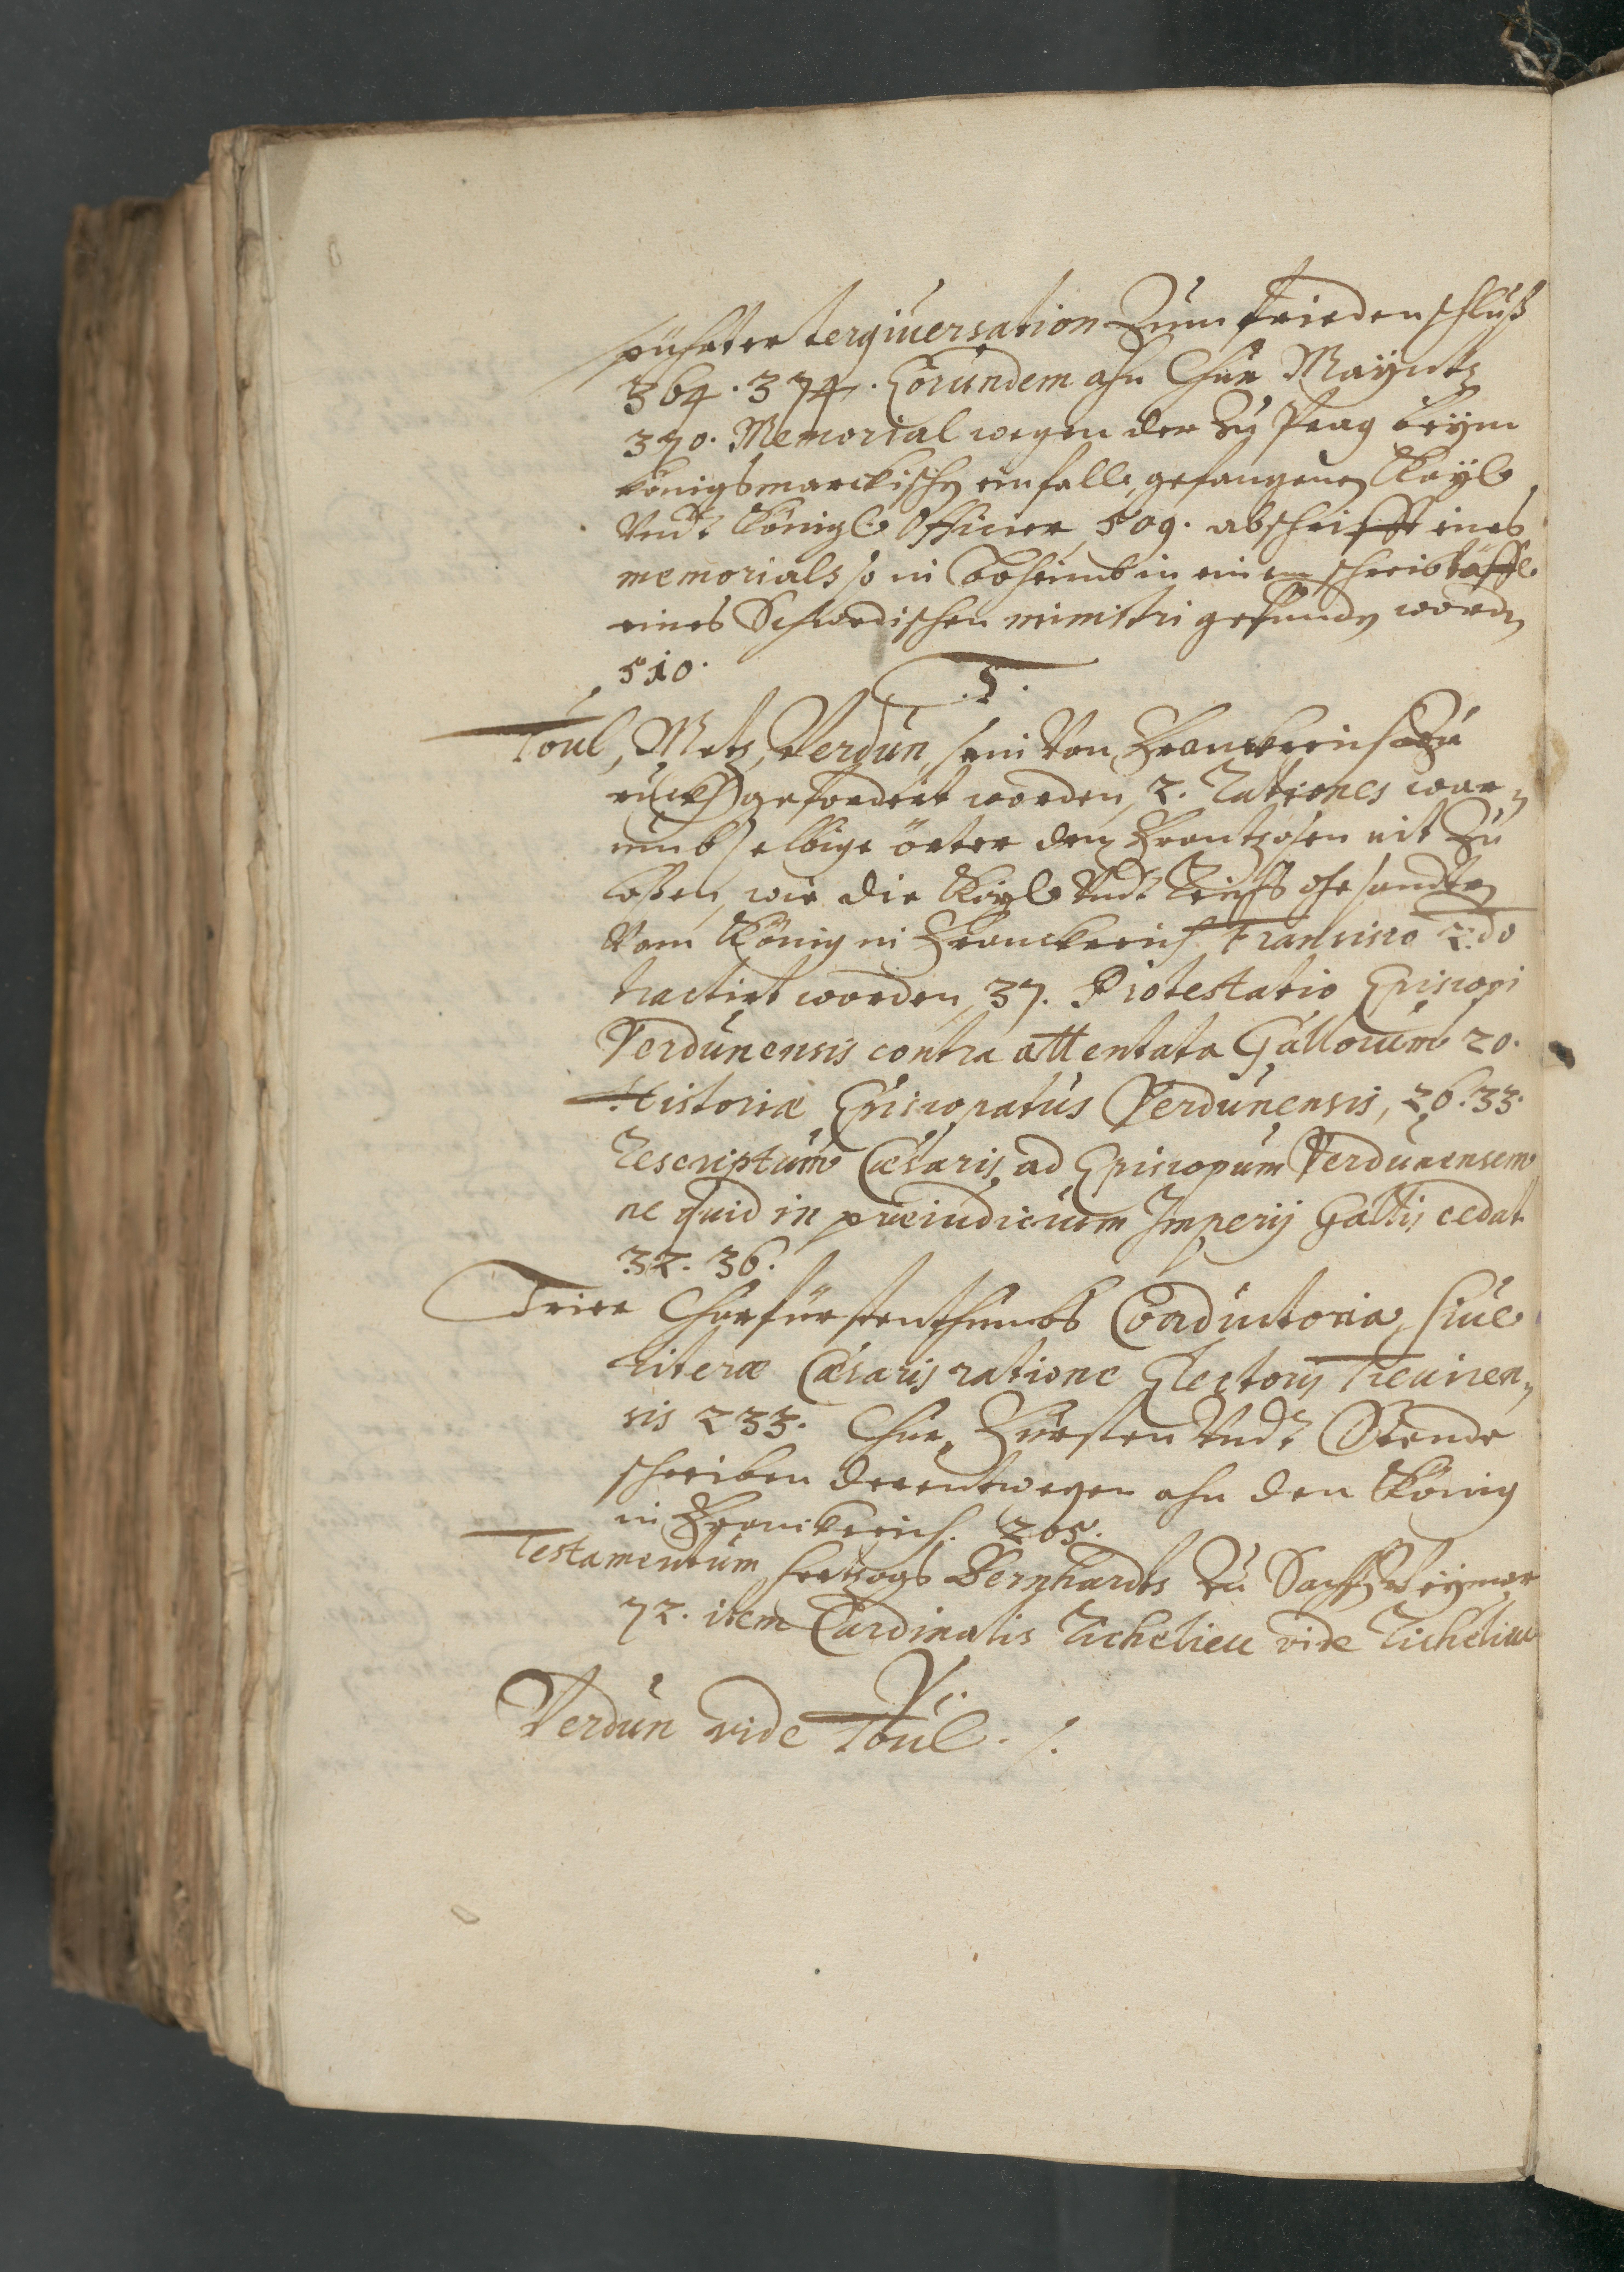 spührter tergiversation Zum friedenschluß
364. 374. Eorundem ahn Chur Mayntz
370. Memorial wegen der Zu Prag beym
königsmarckischen einfall gefangenen Kayl.
Vndt Königl. Officier 509. abschrifft eines
memorials so in Böheimb in einem schreibtäffl.
eines Schwedischen ministri gefunden worden
510.
T.
Toul, Metz, Verdun, sein Von Franckreich Zu
ruckh gefordert worden, 2. Rationes war,
umb selbige örter den Frantzosen nit Zu
laßen, wie die Kayl. Vndt Reichs gesandten
Vom König in Franckreich Francisco 2.do
tractirt worden, 37. Protestatio Episcopi
Verdunensis contra attentata Gallorum 20.
Historia Episcopatus Verdunensis, 26. 33.
Rescriptum Cæsaris ad Episcopum Verdunensem
ne quid in præiudicium Imperij Gallis cedat
32. 36.
Trier Churfürstenthumbs Conductoria, siue
literæ Cæsaris ratione Electorij Treuiren,
sis 233. Chur, Fürsten Vndt Stende
schreiben derentwegen ahn den König
in Franckreich. 265.
Testamentum Hertzogs Bernhardts Zu Sachsen Weymar
72. item Cardinalis Richelieu vide Richelieu
V.
Verdun vide Toul. /.